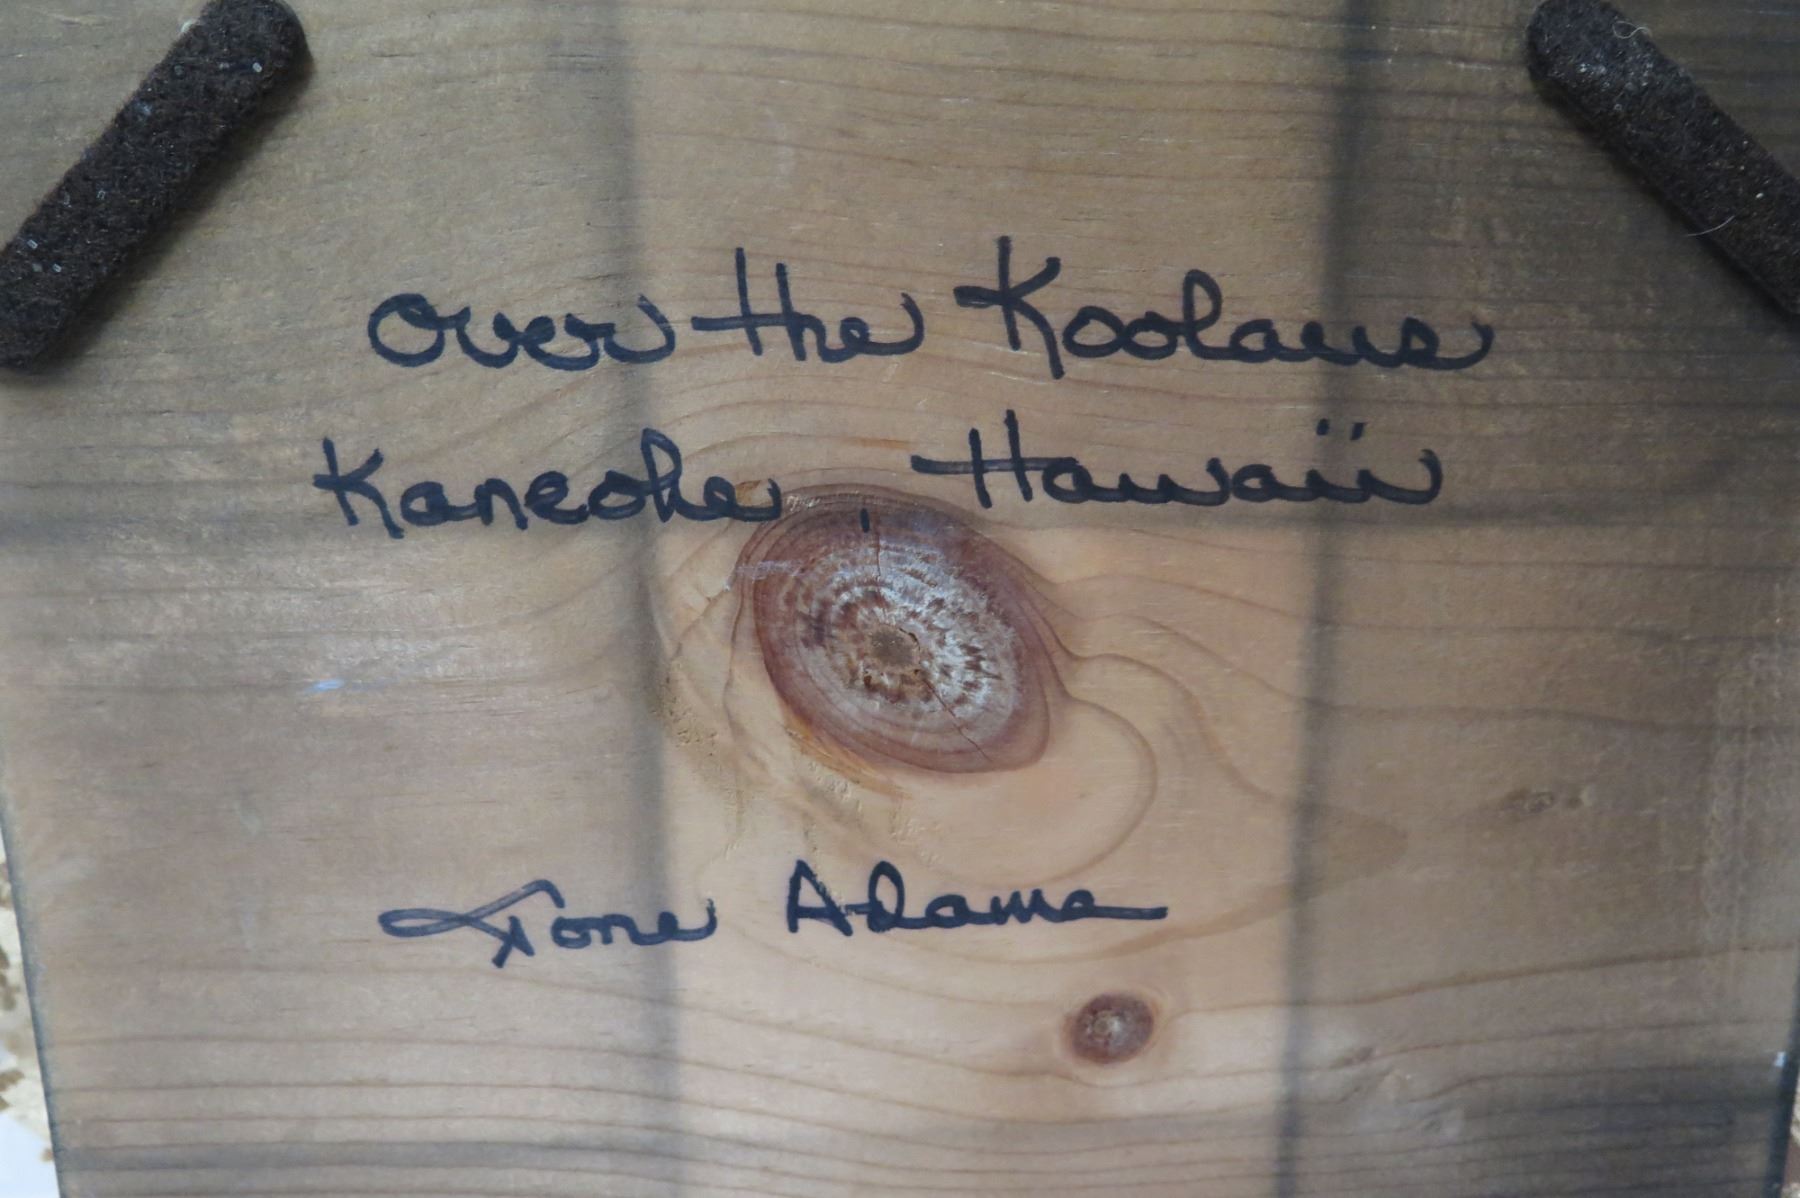 Over the Koolaus
Kaneohe, Hawaii
Tone Adams